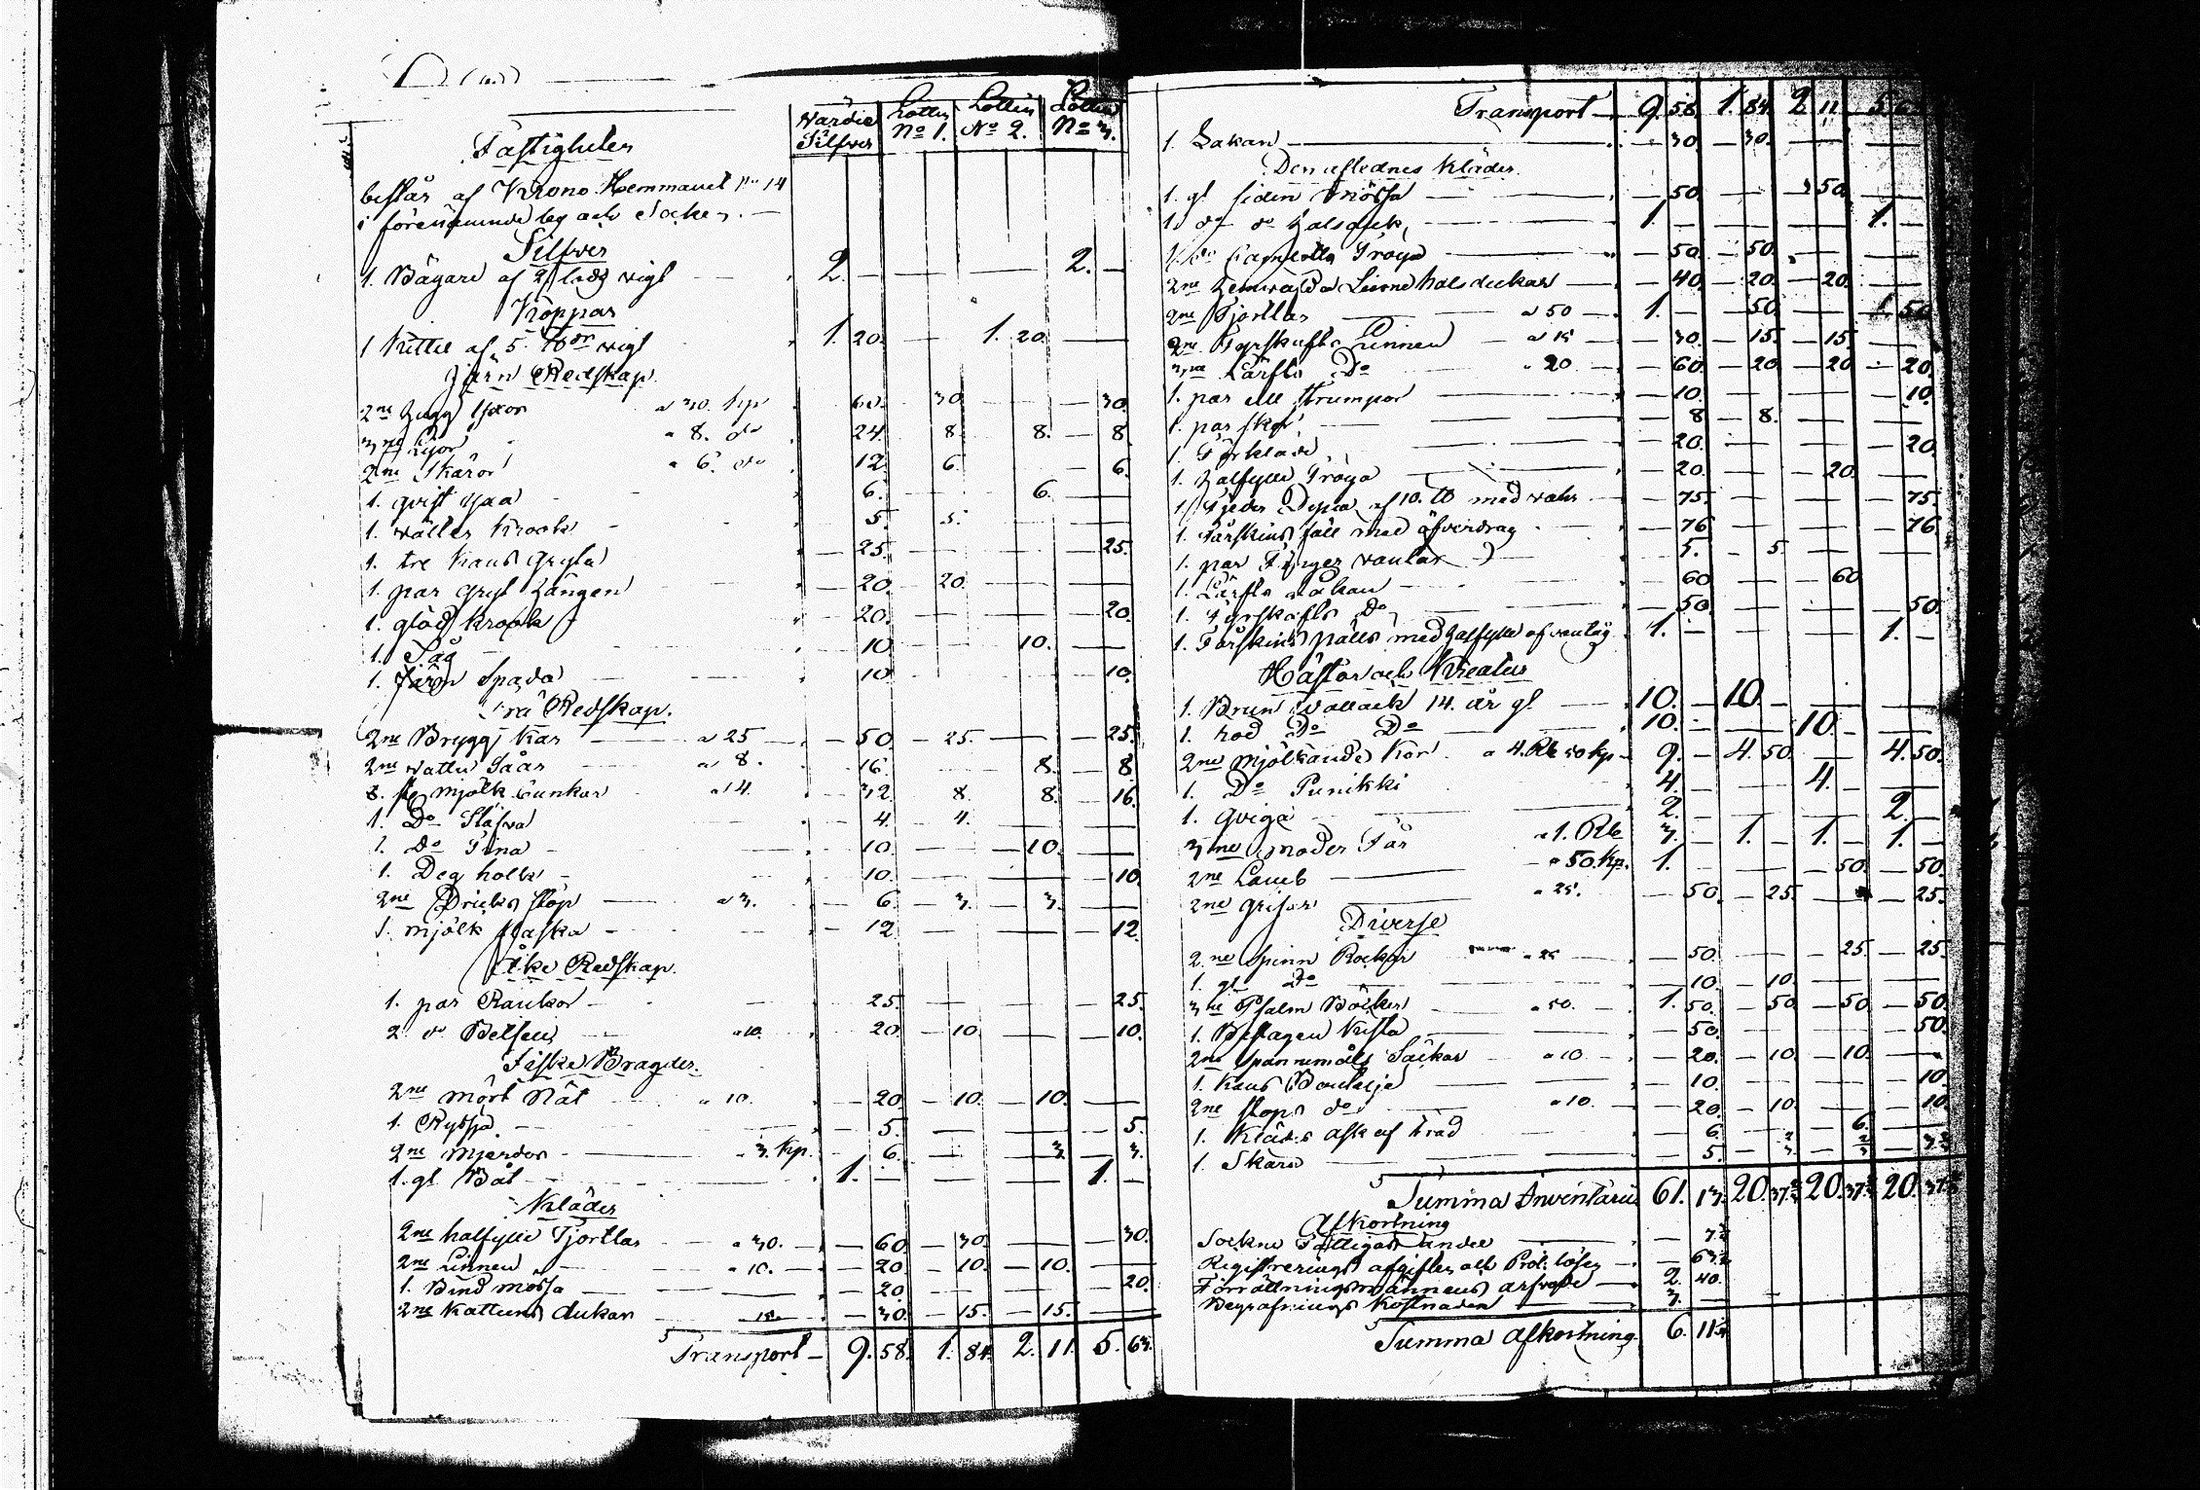 Värdie Silfver | Lotten No 1. | Lotten No 2. | Lotten No 3.
Fastigheter
består af Krono Hemmanet No 14
i förenämnde by och Socken. —
Silfver
1. Bägare af 2 lods vigt 2. — — 2. —
Koppar
1 Kittel af 5 tt vigt 1. 20. — 1. 20. —
Järn Redskap.
2ne Hugg Yxor a 30. kp 60. 30. 30.
3ne Lior " 8. do 24. 8. 8. — 8.
2ne Skäror " 6. do 12. 6. 6.
1. qvist yxa 6. — 6. —
1. Krook 5. 5. —
1. tre Kans Gryta — 25. — — 25.
1. par Gryt Hängen — 20. — 20. —
1. glöd Krook — 20. — — 20.
1. Såg — 10. 10. —
1. Järn Spada 10. 10.
Trä Redskap.
2ne Brygg Kar a 25 — 50. — 25. — 25.
2ne vatten Såar a 8. 16. 8. — 8.
8. mjölk Bunkar a 4. 32. 8. 8. — 16.
1. Do Stäfva — 4. — 4. —
1. do Tina — 10. — 10. —
1. Deg holk — 10. — 10.
2ne Dricks stop a 3. — 6. — 3. — 3. —
1. mjölk flaska — 12. — 12.
Åke Redskap.
1. par Rankor — 25. — 25.
2. do Betsell " 10. — 20. — 10. — 10.
Fiske Bragder.
2ne mört Nät " 10. — 20. — 10. — 10. —
1. Ryssja — 5. — 5.
2ne Mjerdor " 3. kp. — 6. — 3. — 3.
1. gl Båt 1. — 1. —
Kläder
2ne halfylle Tjortlar " 30. — 60. — 30. — 30.
2ne Linnen " 10. — 20. — 10. — 10. —
1. Bind mössa — 20. — 20.
2ne Kattuns dukar 15. — 30. — 15. — 15. —
Transport — 9. 58. 1. 84. 2. 11. 5. 63.
Transport — 9. 58. 1. 84. 2. 11. 5. 63.
1. Lakan — 30. — 30. —
Den aflednes Kläder.
1. gl siden Mössa — 50. — 50. —
1. do do halsduk 1. — 1. —
1. do Tröja — 50. — 50. —
2ne halsdukar — 40. — 20. — 20. —
2ne Tjortlar a 50 — 1. — 50. — 50.
2ne Fyrskafts Linnen a 15 — 30. — 15. — 15. —
3ne Lärfts Do " 20 — 60. — 20. — 20. — 20.
1. par ulle strumpor — 10. — 10.
1. par skor — 8. — 8. —
1. Förkläde — 20. — 20.
1. halfylle Tröja — 20. — 20. —
1. Fjeder Dyna af 10. tt med vahr — 75. — 75.
1. Fårskins fäll med öfverdrag — 76. — 76.
1. par Finger vantar — 5. — 5. —
1. Lärfts Lakan — 60. — 60.
1. Fyrskafts Do — 50. — 50.
1. Fårskins Pälts med halfylle 1. — 1. —
Hästar och Kreatur
1. Brun Wallack 14. år gl 10. — 10. —
1. Röd Do Do 10. — 10. —
2ne Mjölkande Kor a 4. Rb 50 kp — 9. — 4. 50. — 4. 50.
1. Do Punikki 4. — 4. —
1. Qviga 2. — 2. —
3ne moder Får a 1. Rb 3. — 1. — 1. — 1. —
2ne Lamb " 50. kp. 1. — 50. — 50.
2ne grisar " 25. — 50. — 25. — 25.
Diverse
2ne Spinn Rockar " 25 — 50. — 25. — 25.
1. gl Do — 10. — 10. —
3ne Psalm Böcker " 50. — 1. 50. — 50. — 50. — 50.
1. Beslagen Kista — 50. — 50.
2ne spannemåls Säckar " 10 — 20. — 10. — 10. —
1. Kans — 10. — 10.
2ne stops do " 10. — 20. — 10. — 10.
1. Kläds ask af träd — 6. — 6. —
1. Skära — 5.
Summa Inventarii 61. 13. 20. 37 20. 37 20. 37
Afkortning
Sockne Fattigas andel
Registrerings afgiften och Prot: lösen
Förrättningsmännens arfvode — 2. 40.
Begrafnings Kostnaden 3. —
Summa Afkortning 6. 11